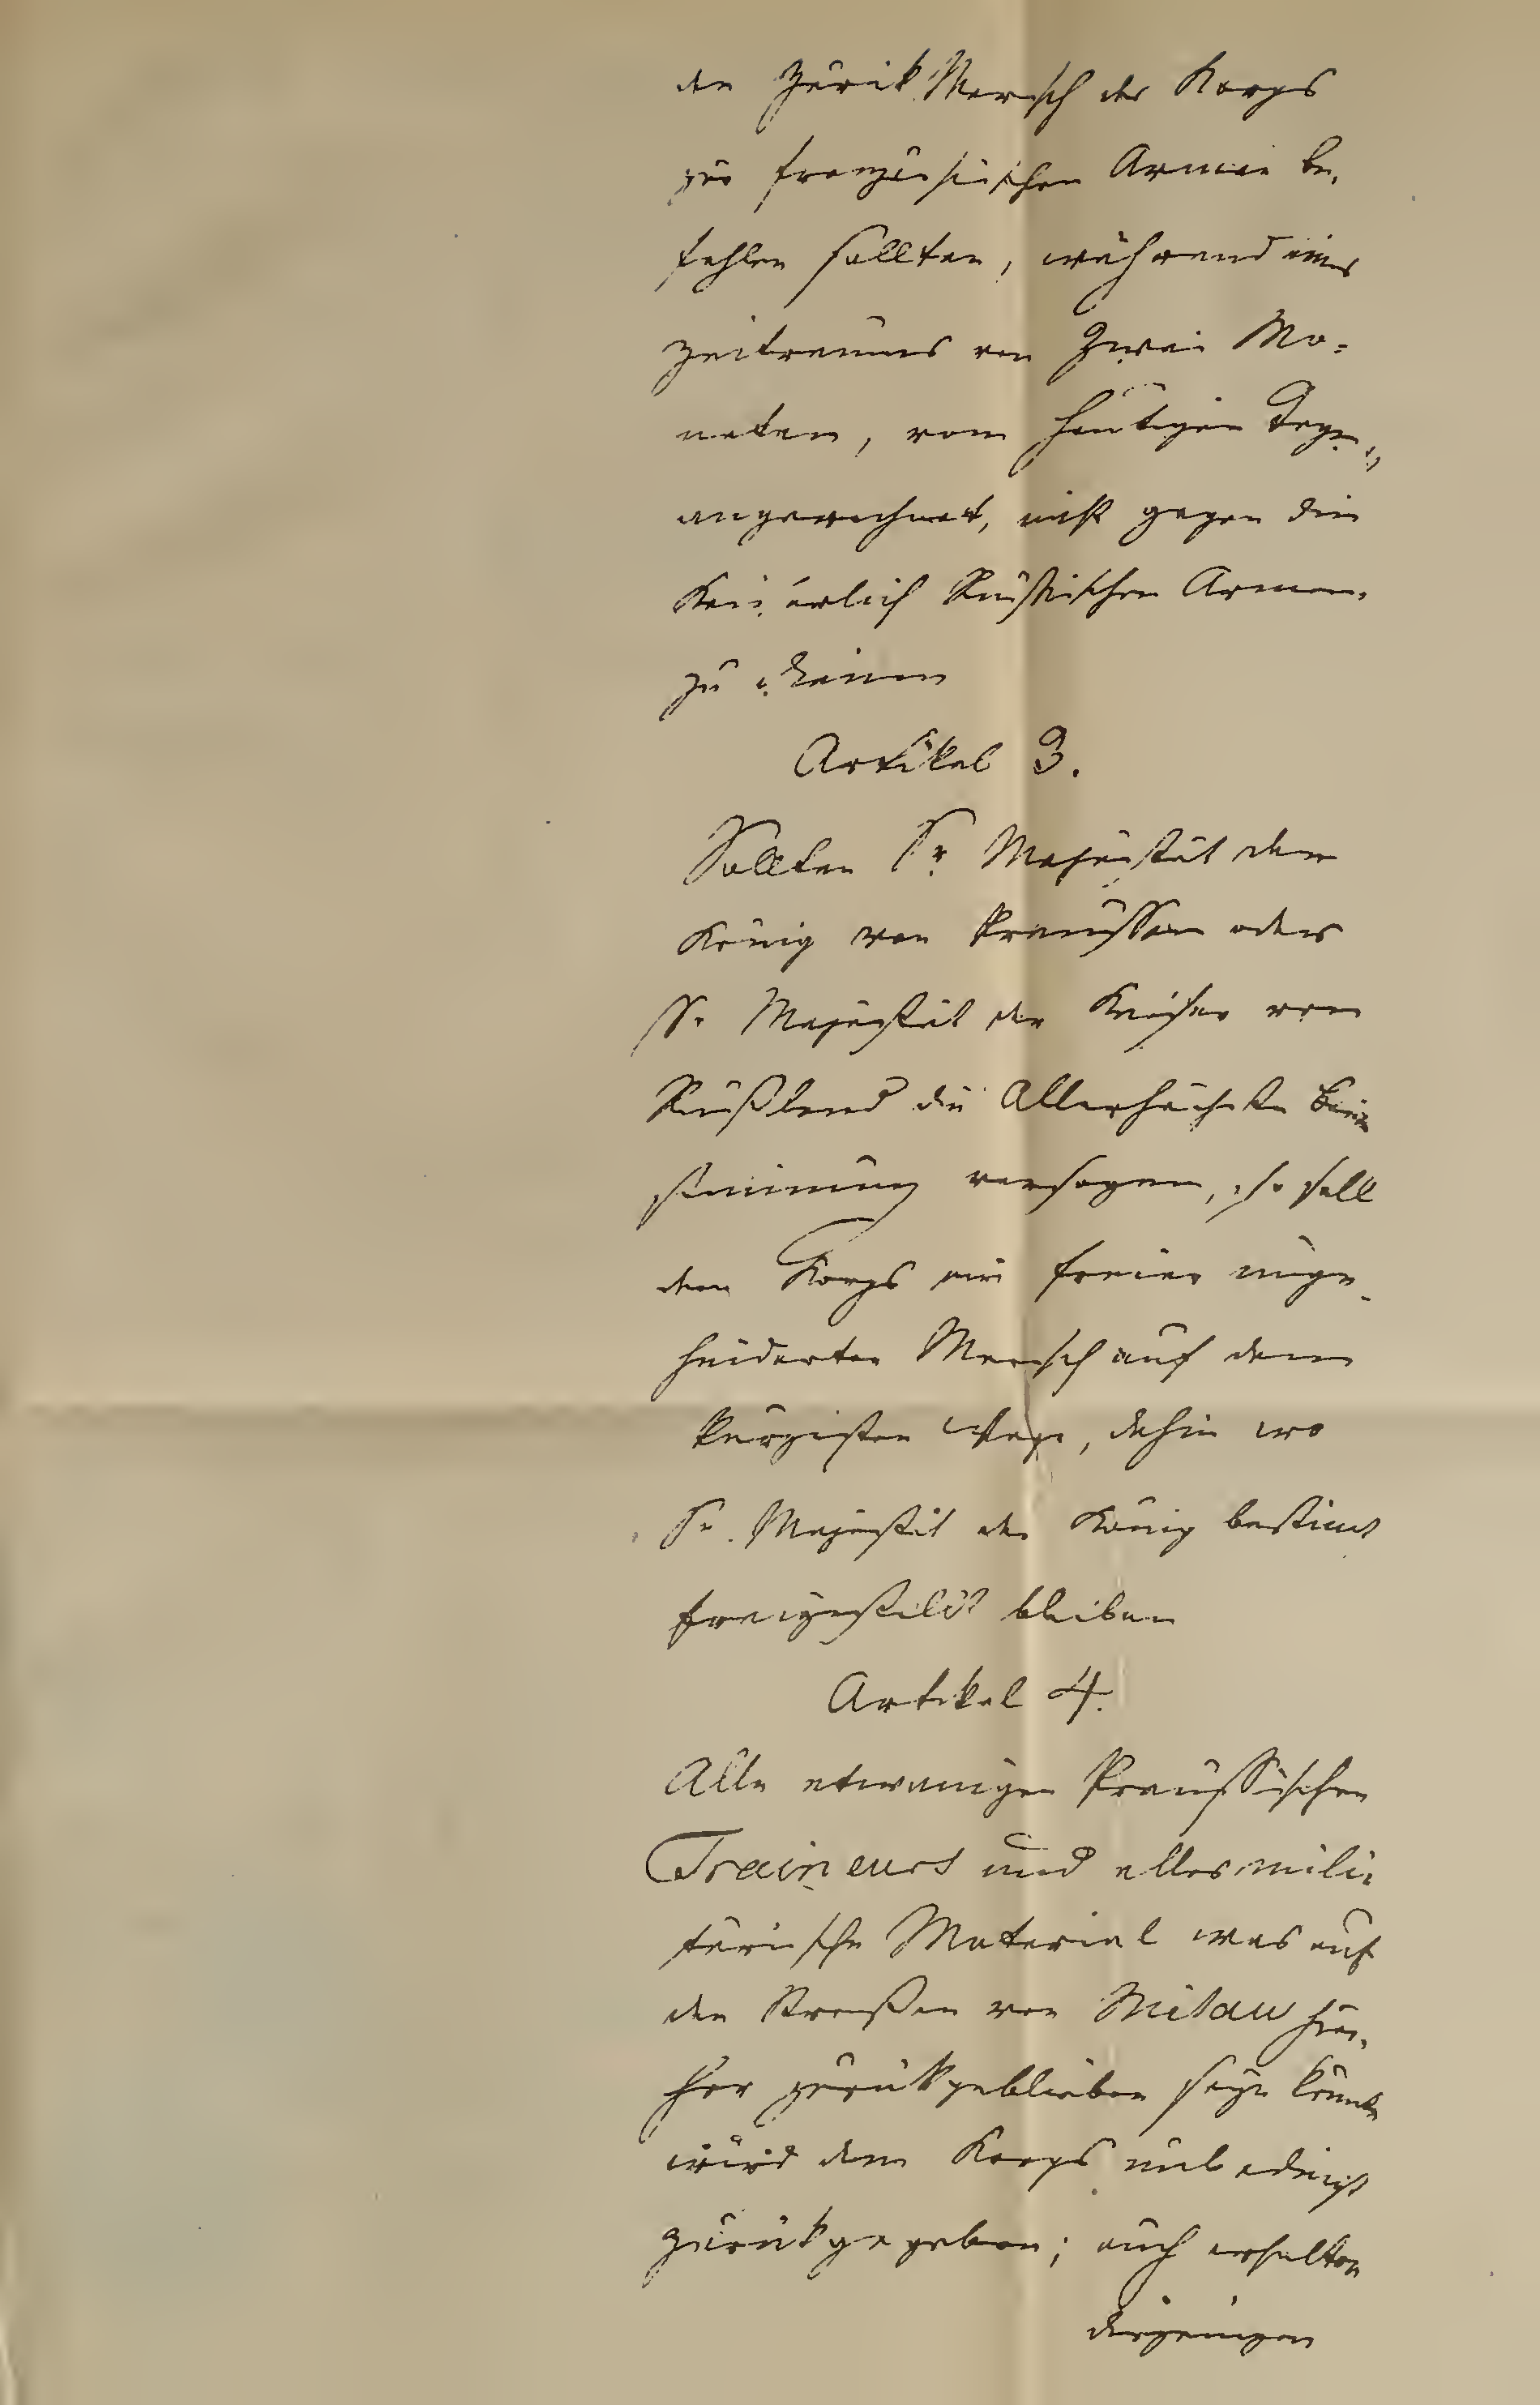 den Zurück Marsch des Korps
zur französischen Armee be-
fehlen sollten, während eines
Zeitraums von Zwei Mo=
naten, vom heutigen Tage
angerechnet, nicht gegen die
Kaiserlich Russischen Armeen
zu dienen
Artikel 3.
Sollten Sr. Majestät der
König von Preussen oder
Sr. Majestät der Kaiser von
Rußland die Allerhöchste Bei
stimmung versagen, so soll
dem Korps ein freier unge-
hinderter Marsch auf dem
kürzesten Wege, dahin wo
Sr. Majestät der König bestimt
freigestellt bleiben
Artikel 4.
Alle etwanigen Preussischen
Traineurs und alles mili-
tärische Material was auf
den Straßen von Mitau hie-
her zurückgeblieben seyn könnte
wird dem Korps unbedingt
zurückgegeben; auch erhalten
diejenigen